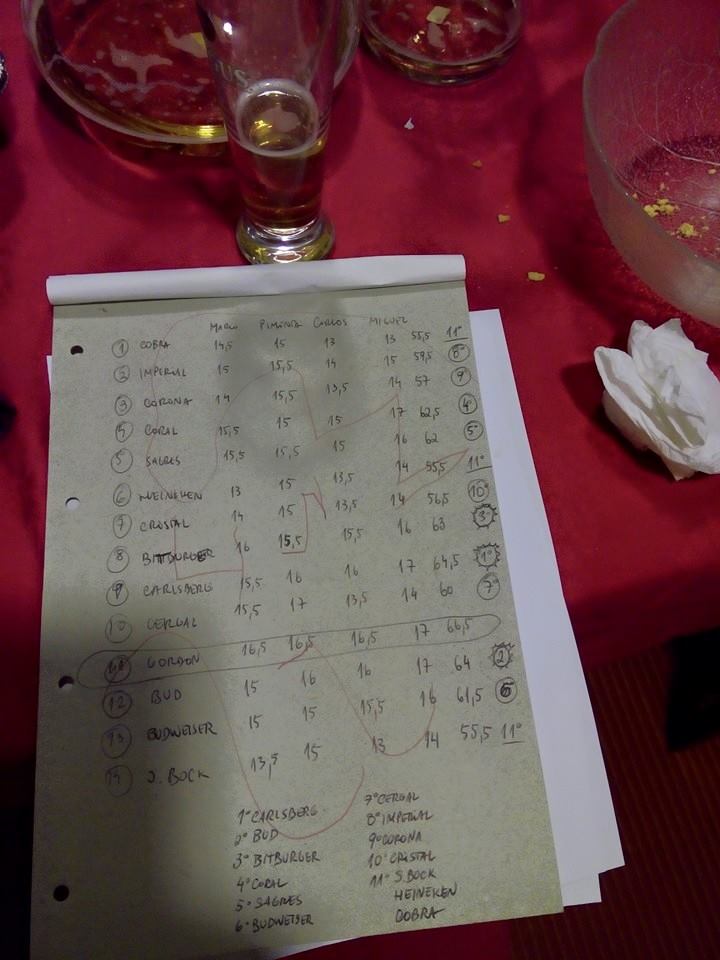 US
MARCO PIMENTA CARLOS MIGUEL
1 COBRA 14,5 15 13 13 55,5 11º
2 IMPERIAL 15 15,5 14 15 59,5 8º
3 CORONA 14 15,5 13,5 14 57 9º
4 CORAL 15,5 15 15 17 62,5 4º
5 SAGRES 15,5 15,5 15 16 62 5º
6 HEINEKEN 13 15 13,5 14 55,5 11º
7 CRISTAL 14 15 13,5 14 56,5 10º
8 BITTBURGER 16 15,5 15,5 16 63 3º
9 CARLSBERG 15,5 16 16 17 64,5 1º
10 CERGAL 15,5 17 13,5 14 60 7º
11 GORDON 16,5 16,5 16,5 17 66,5
12 BUD 15 16 16 17 64 2º
13 BUDWEISER 15 15 15,5 16 61,5 6
14 S. BOCK 13,5 15 13 14 55,5 11º
1º CARLSBERG
2º BUD
3º BITBURGER
4º CORAL
5º SAGRES
6º BUDWEISER
7º CERGAL
8º IMPERIAL
9º CORONA
10º CRISTAL
11º S.BOCK
HEINEKEN
COBRA